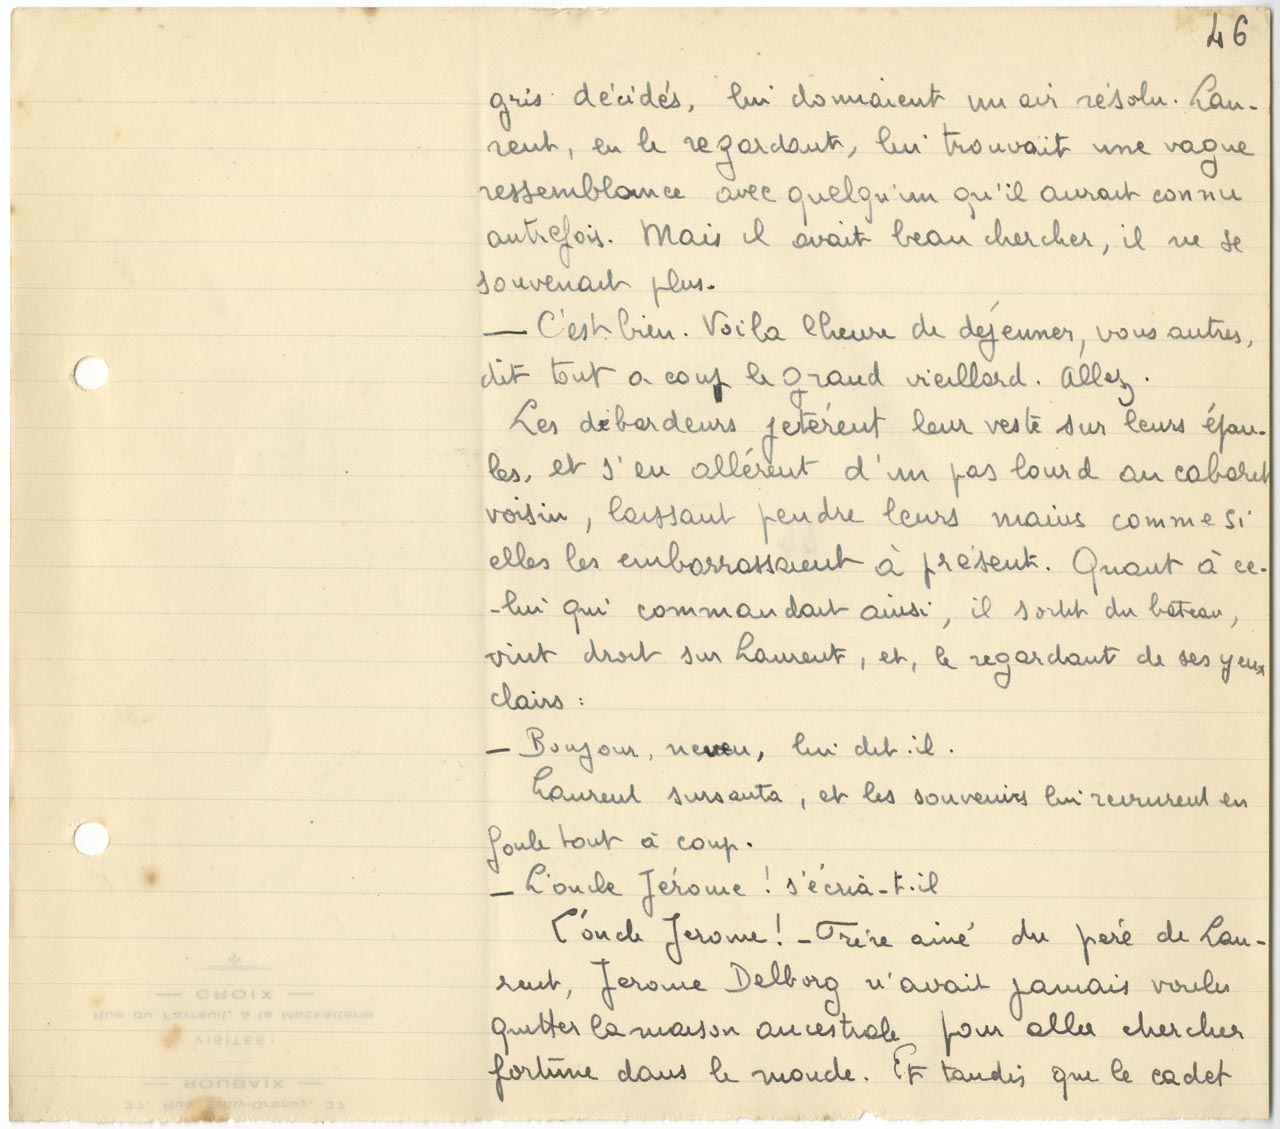 46
gris décidés, lui donnaient un air résolu. Lau-
rent, en le regardant, lui trouvait une vague
ressemblance avec quelqu'un qu'il aurait connu
autrefois. Mais il avait beau chercher, il ne se
souvenait plus.
— C'est bien. Voila l'heure de déjeuner, vous autres,
dit tout a coup le grand vieillard. Allez.
Les débardeurs jetérent leur veste sur leurs épau-
les, et s'en allérent d'un pas lourd au cabaret
voisin, laissant pendre leurs mains comme si
elles les embarrassaient à présent. Quant à ce-
-lui qui commandait ainsi, il sortit du bateau,
vint droit sur Laurent, et, le regardant de ses yeux
clairs :
— Bonjour, neveu, lui dit-il.
Laurent sursauta, et les souvenirs lui revinrent en
foule tout à coup.
— L'oncle Jérome ! s'écria-t-il
L'oncle Jerome ! — Frère ainé du peré de Lau-
rent, Jerome Delborg n'avait jamais voulu
quitter la maison ancestrale pour aller chercher
fortune dans le monde. Et tandis que le cadet
— CROIX —
Rue du Favreuil, à la Mackellerie
VISITES :
— ROUBAIX —
27, Rue Bully-Grenay, 27